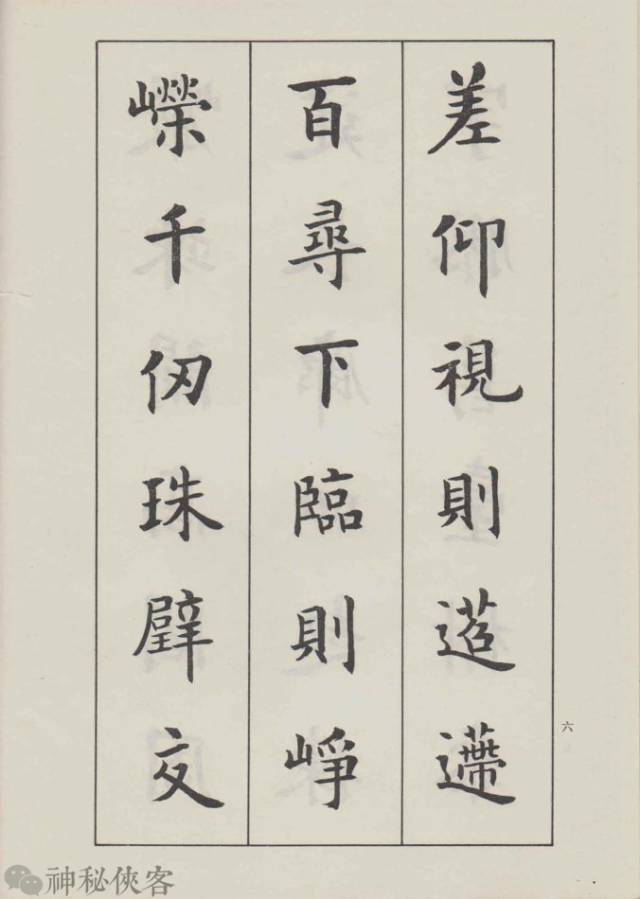 差仰視則迢遰
百尋下臨則崢
嶸千仞珠壁交
六
神秘俠客